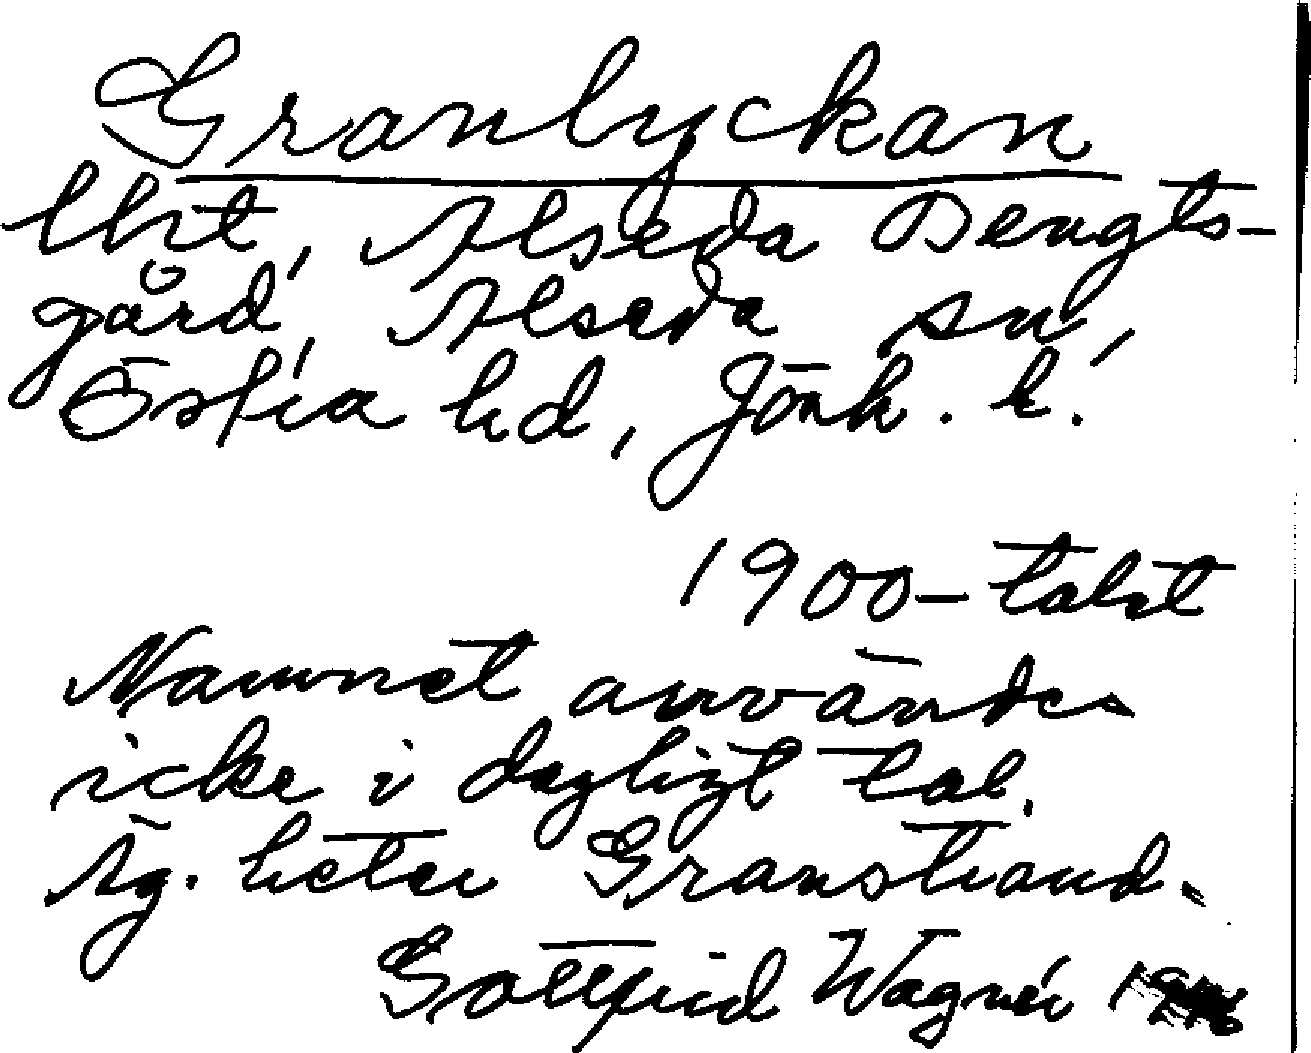 Granlyckan
lht, Alseda Bengts-
gård, Alseda sn,
Östra hd, Jönk. l.
1900-talet
Namnet användes
icke i dagligt tal.
Äg. heter Granstrand.
Gottfrid Wagnér